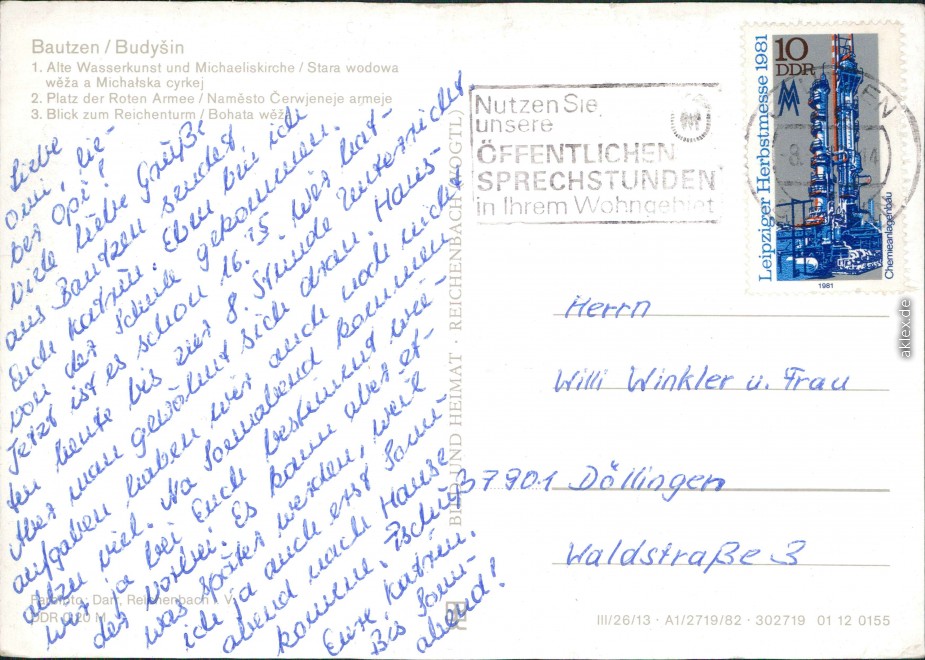 Bautzen / Budyšin
1. Alte Wasserkunst und Michaeliskirche / Stara wodowa
wěža a Michałska cyrkej
2. Platz der Roten Armee / Naměsto Čerwjeneje armeje
3. Blick zum Reichenturm / Bohata wěža
Liebe
Omi, lie-
ber Opi!
Viele liebe Grüße
aus Bautzen sendet
Euch Katrin. Eben bin ich
von der Schule gekommen.
Jetzt ist es schon 16.15. Wir hat-
ten heute bis zur 8. Stunde Unterricht
Aber man gewöhnt sich dran. Haus-
aufgaben haben wir auch noch nicht
allzu viel. Na Sonnabend kommen
wir ja bei Euch bestimmt wie-
der vorbei. Es kann aber et-
was später werden, weil
ich ja auch erst Sonn-
abend nach Hause
komme. Tschüß
Eure Katrin.
Bis Sonn-
abend!
Farbfoto: Darr, Reichenbach i. V.
DDR 0,20 M
BILD UND HEIMAT · REICHENBACH (VOGTL)
Nutzen Sie
unsere
ÖFFENTLICHEN
SPRECHSTUNDEN
in Ihrem Wohngebiet
10
DDR
Leipziger Herbstmesse 1981
Chemieanlagenbau
1981
Herrn
Willi Winkler u. Frau
7901 Döllingen
Waldstraße 3
III/26/13 · A1/2719/82 · 302719 01 12 0155
aklex.de